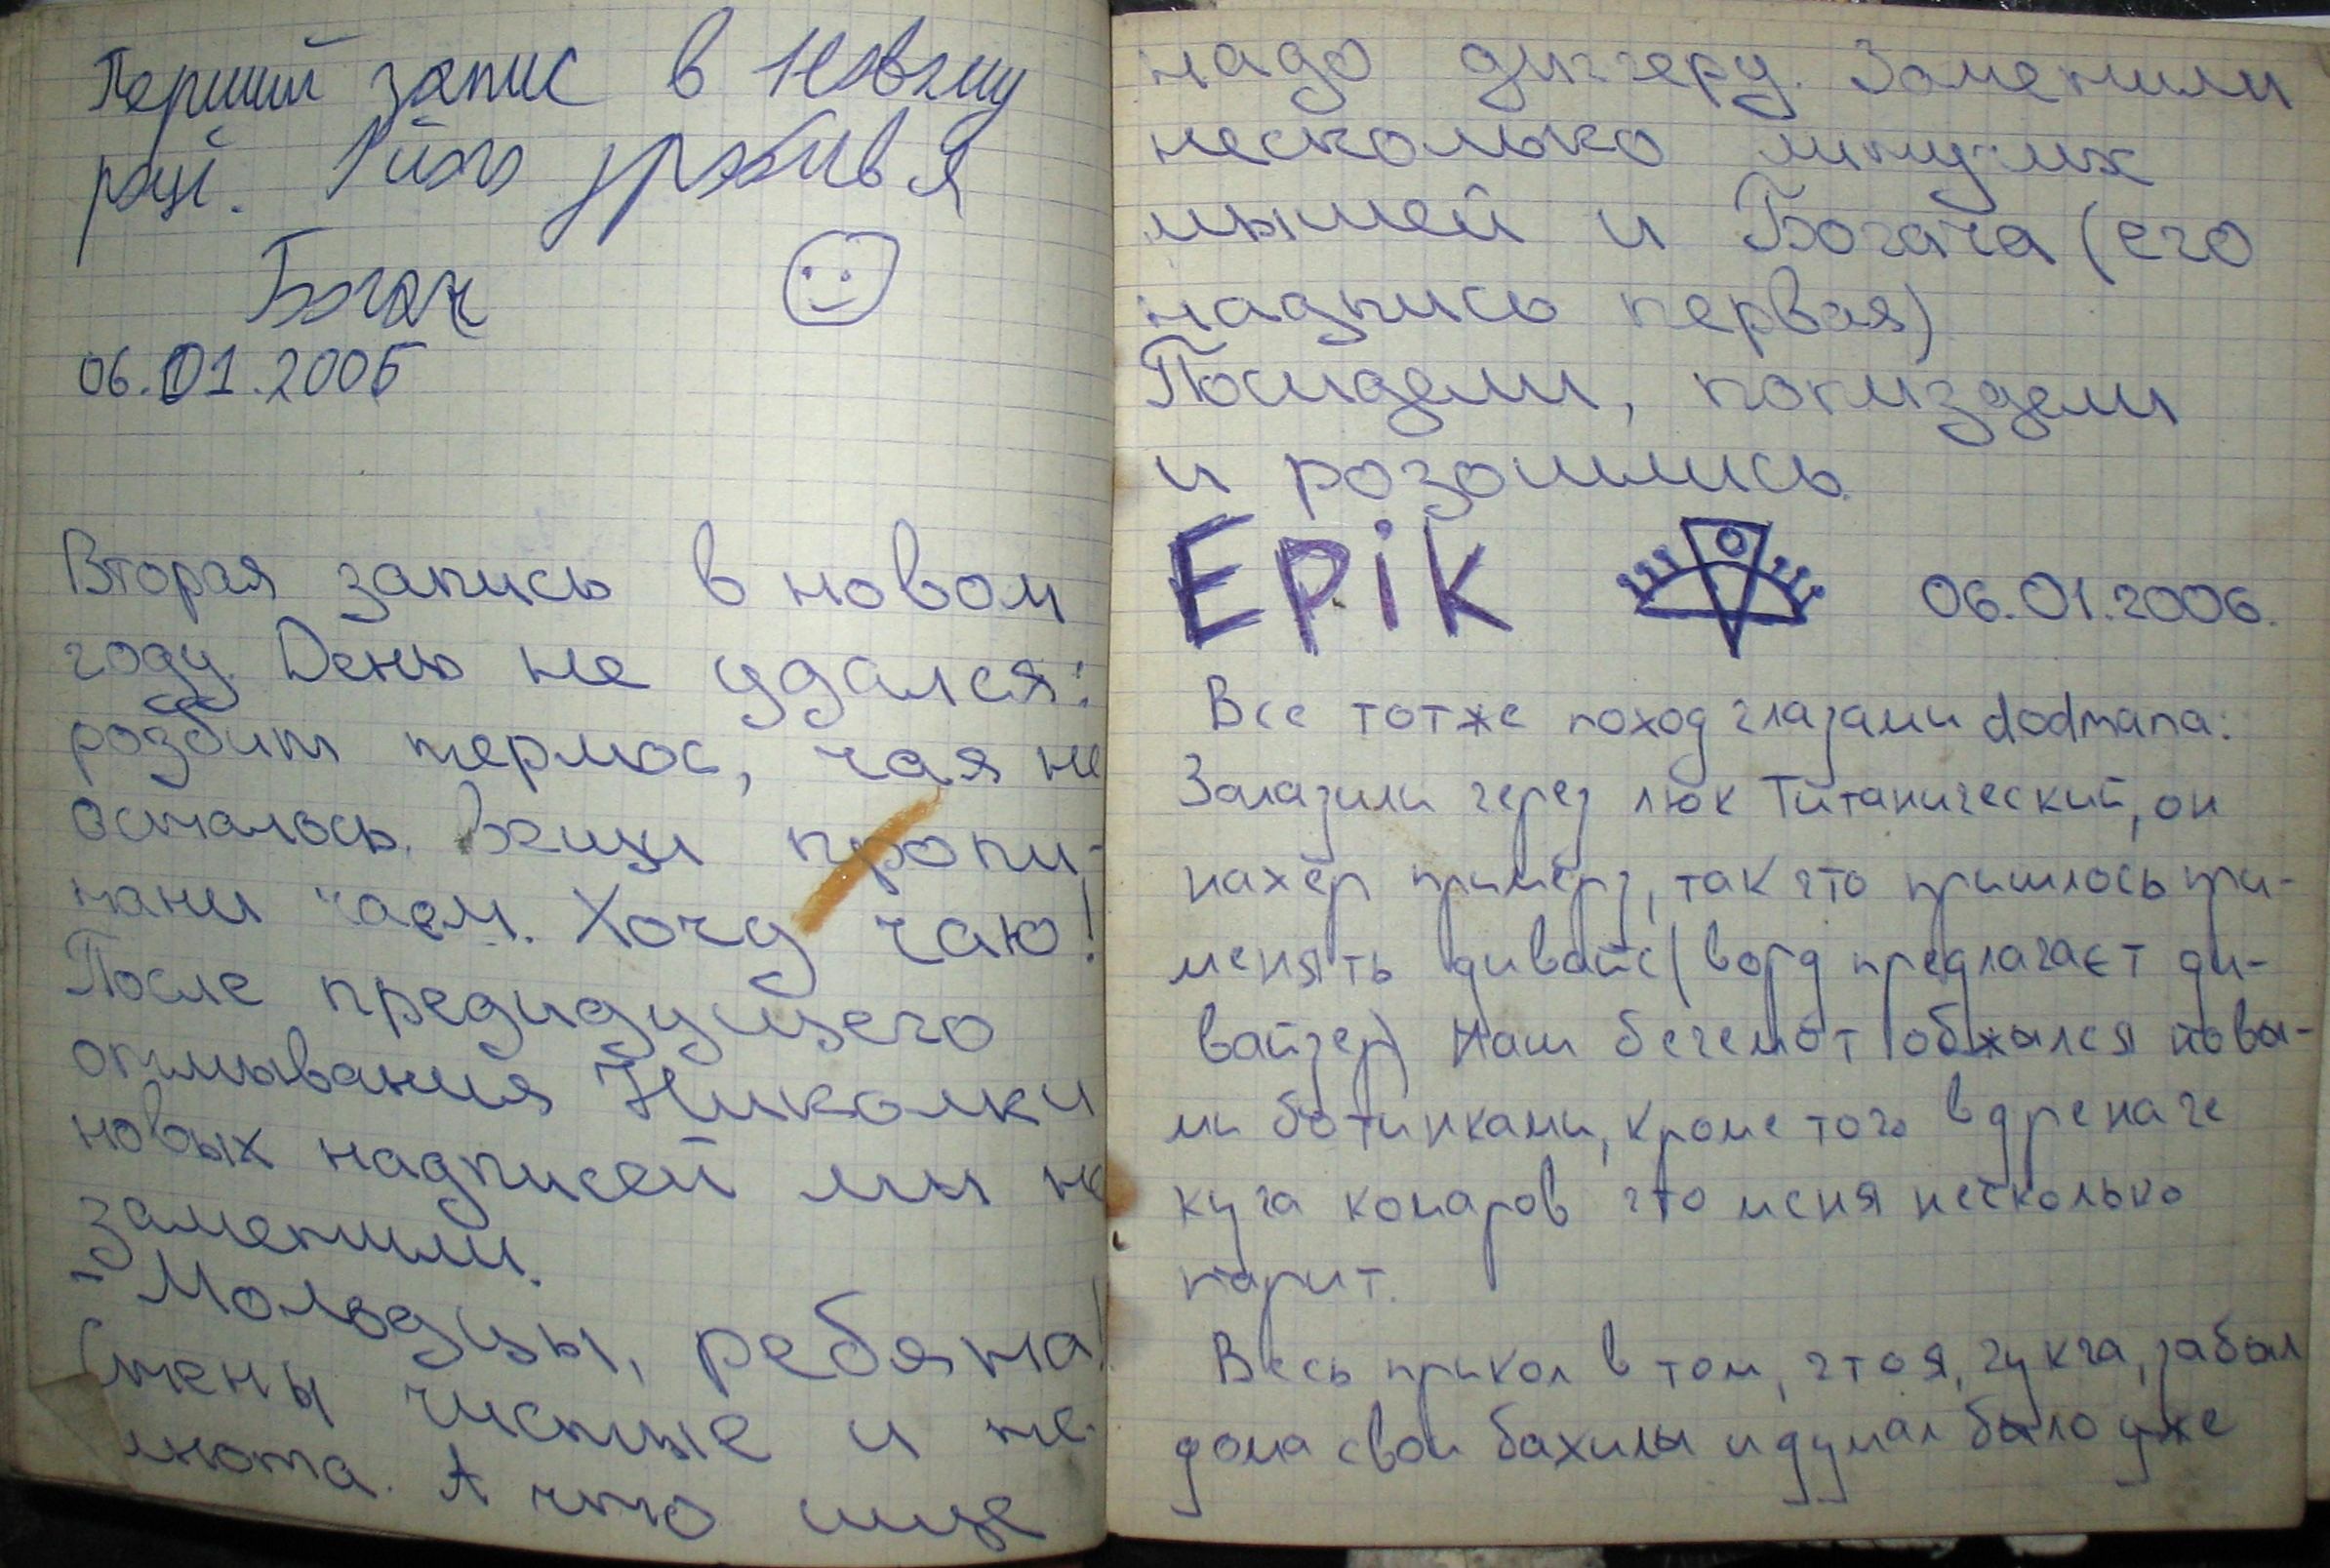 Перший запис в новому
році. І його зробив я
Богач
06.01.2006
Вторая запись в новом
году. Dень не удался:
розбит термос, чая не
осталось. Вещи пропи-
таны чаем. Хочу чаю!
После предидущего
отмывания Николки
новых надписей мы не
заметили.
- Молодцы, ребята!
Стены чистые и те-
мнота. А что ище
надо диггеру. Заметили
несколько литучих
мышей и Богача (его
надпись первая)
Посидели, попиздели
и розошлись.
Epik 06.01.2006.
Все тотже поход глазами dodmana:
Залазили через люк Титанический, он
нахер примёрз, так что пришлось при-
менять дивайс (ворд предлагаєт ди-
вайзер) Наш бегемот обжался новы-
ми ботинками, кроме того в дренаге
куча комаров что меня несколько
парит.
Весь прикол в том, что я, чукча, забыл
дома свои бахилы и думал было уже